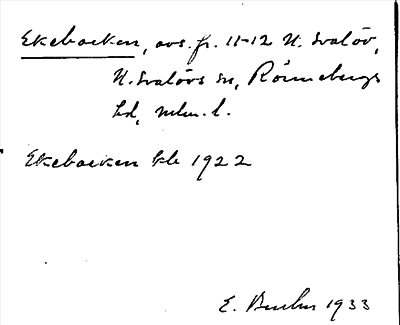 Ekebacken, avs. fr. 11-12 N. Svalöv,
N. Svalövs sn, Rönnebergs
hd, mlm. l.
Ekebacken kb 1922
E. 1933